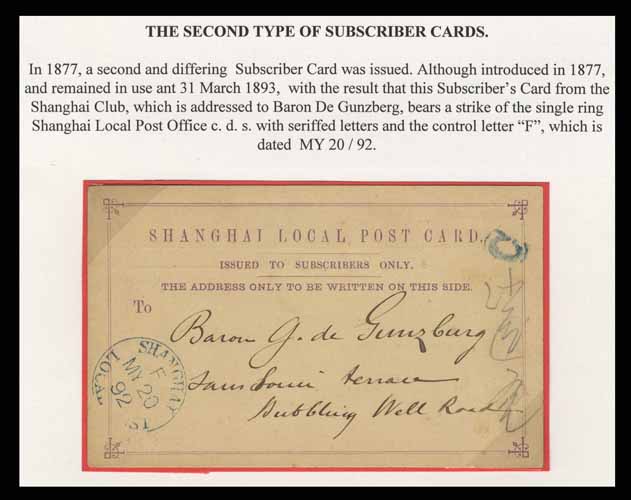 THE SECOND TYPE OF SUBSCRIBER CARDS.
In 1877, a second and differing Subscriber Card was issued. Although introduced in 1877,
and remained in use ant 31 March 1893, with the result that this Subscriber's Card from the
Shanghai Club, which is addressed to Baron De Gunzberg, bears a strike of the single ring
Shanghai Local Post Office c. d. s. with seriffed letters and the control letter “F”, which is
dated MY 20 / 92.
SHANGHAI LOCAL POST CARD.
ISSUED TO SUBSCRIBERS ONLY.
THE ADDRESS ONLY TO BE WRITTEN ON THIS SIDE.
To
Baron G. de Gunzburg
Sans Souci terrace
Bubbling Well Road
SHANGHAI
LOCAL
F
MY 20
92